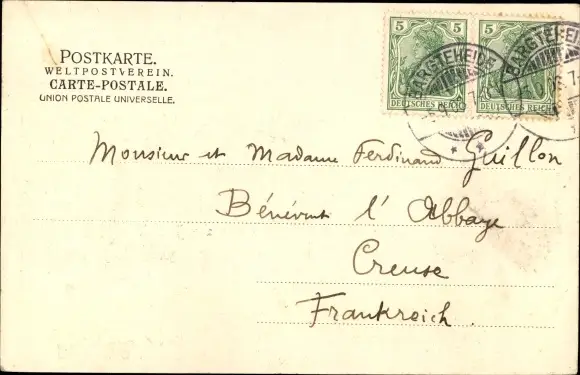 POSTKARTE.
WELTPOSTVEREIN.
CARTE-POSTALE.
UNION POSTALE UNIVERSELLE.
5 5
5 5
DEUTSCHES REICH DEUTSCHES REICH
BARGTEHEIDE BARGTEHEIDE
Monsieur et Madame Ferdinand Guillon
Bénévent l'Abbaye
Creuse
Frankreich.